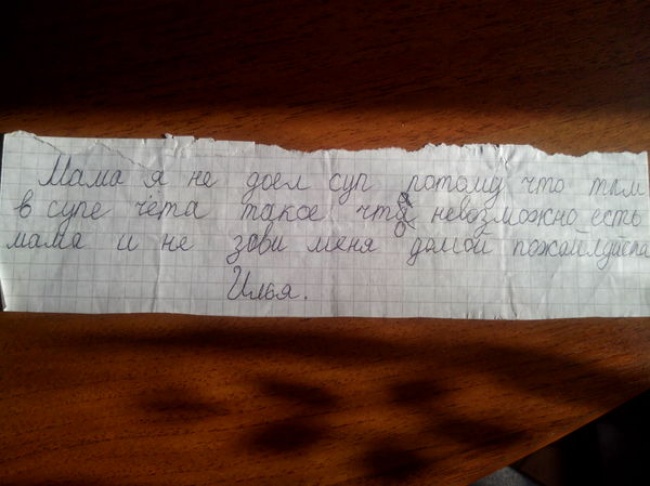 Мама я не доел суп потому что там
в супе чёта такое что невозможно есть
мама и не зови меня домой пожайлдуста
Илья.